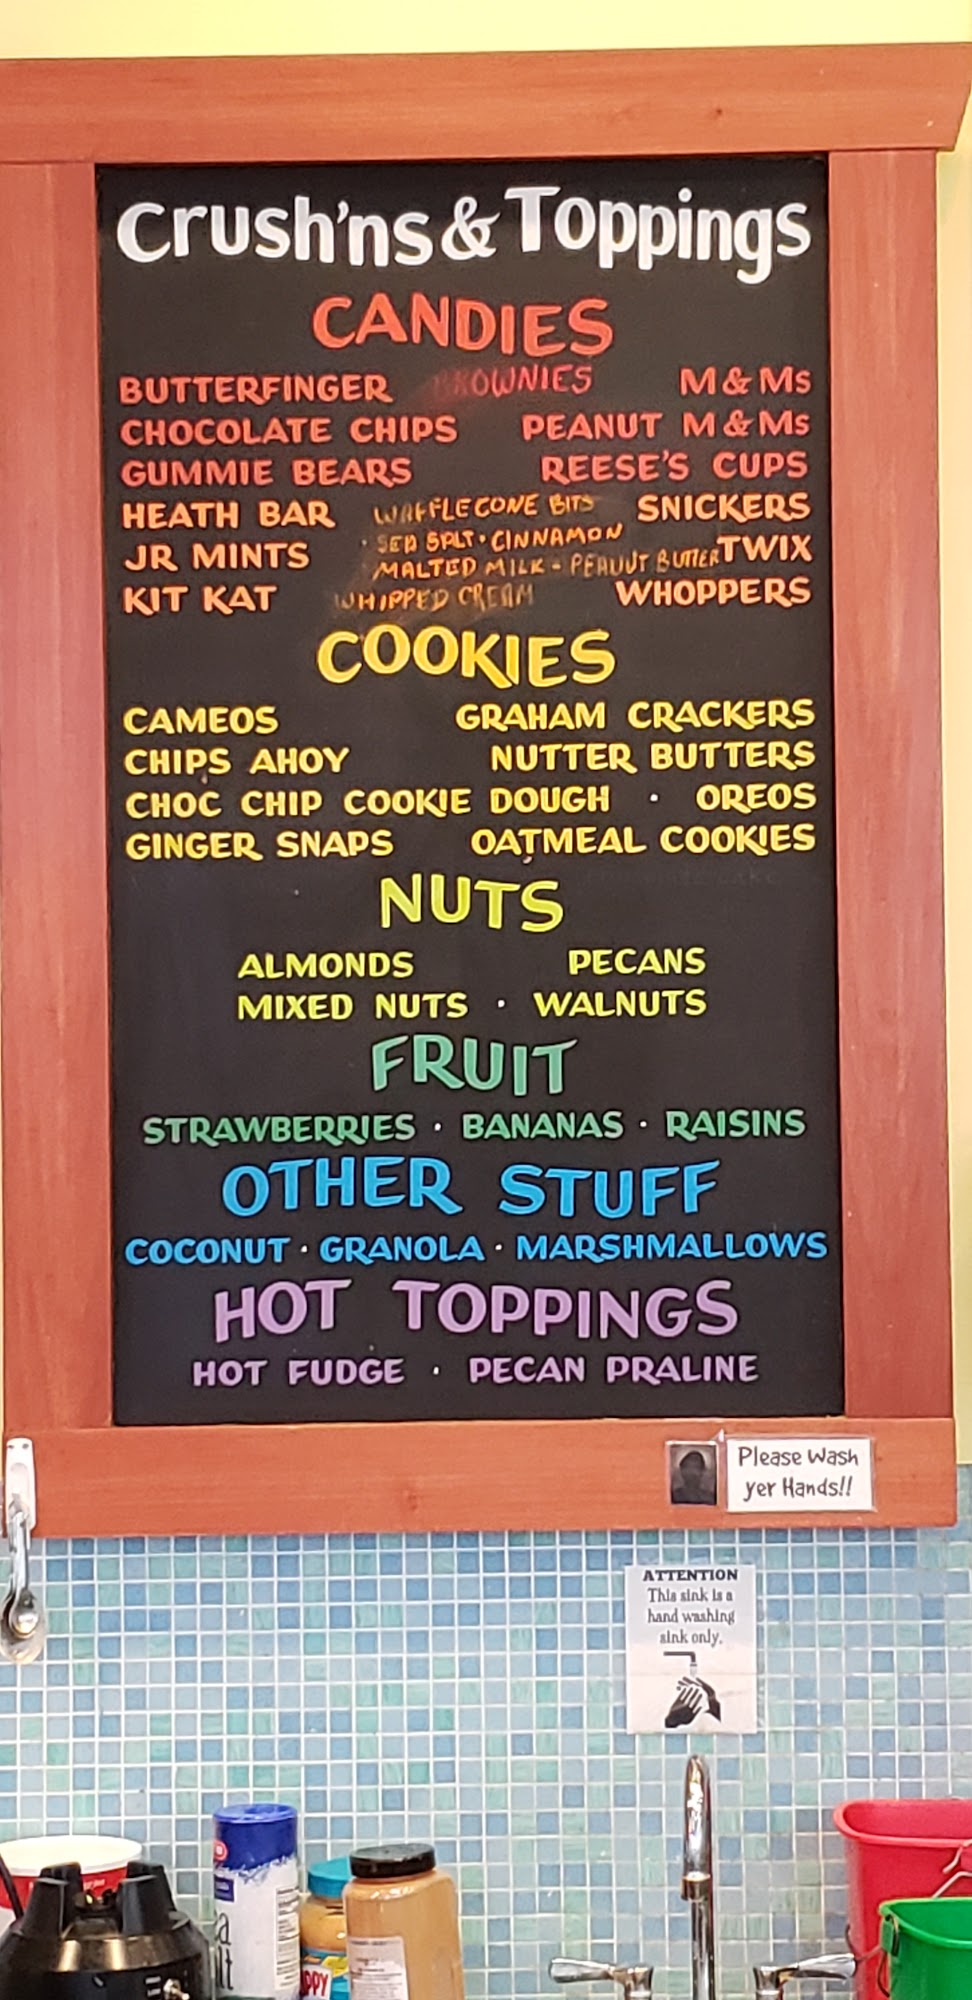 Crush'ns & Toppings
CANDIES
BUTTERFINGER BROWNIES M & Ms
CHOCOLATE CHIPS PEANUT M & Ms
GUMMIE BEARS REESE'S CUPS
HEATH BAR WAFFLE CONE BITS SNICKERS
JR MINTS · SEA SALT · CINNAMON TWIX
MALTED MILK - PEANUT BUTTER
KIT KAT WHIPPED CREAM WHOPPERS
COOKIES
CAMEOS GRAHAM CRACKERS
CHIPS AHOY NUTTER BUTTERS
CHOC CHIP COOKIE DOUGH · OREOS
GINGER SNAPS OATMEAL COOKIES
NUTS
ALMONDS PECANS
MIXED NUTS · WALNUTS
FRUIT
STRAWBERRIES · BANANAS · RAISINS
OTHER STUFF
COCONUT · GRANOLA · MARSHMALLOWS
HOT TOPPINGS
HOT FUDGE · PECAN PRALINE
Please Wash
yer Hands!!
ATTENTION
This sink is a
hand washing
sink only.